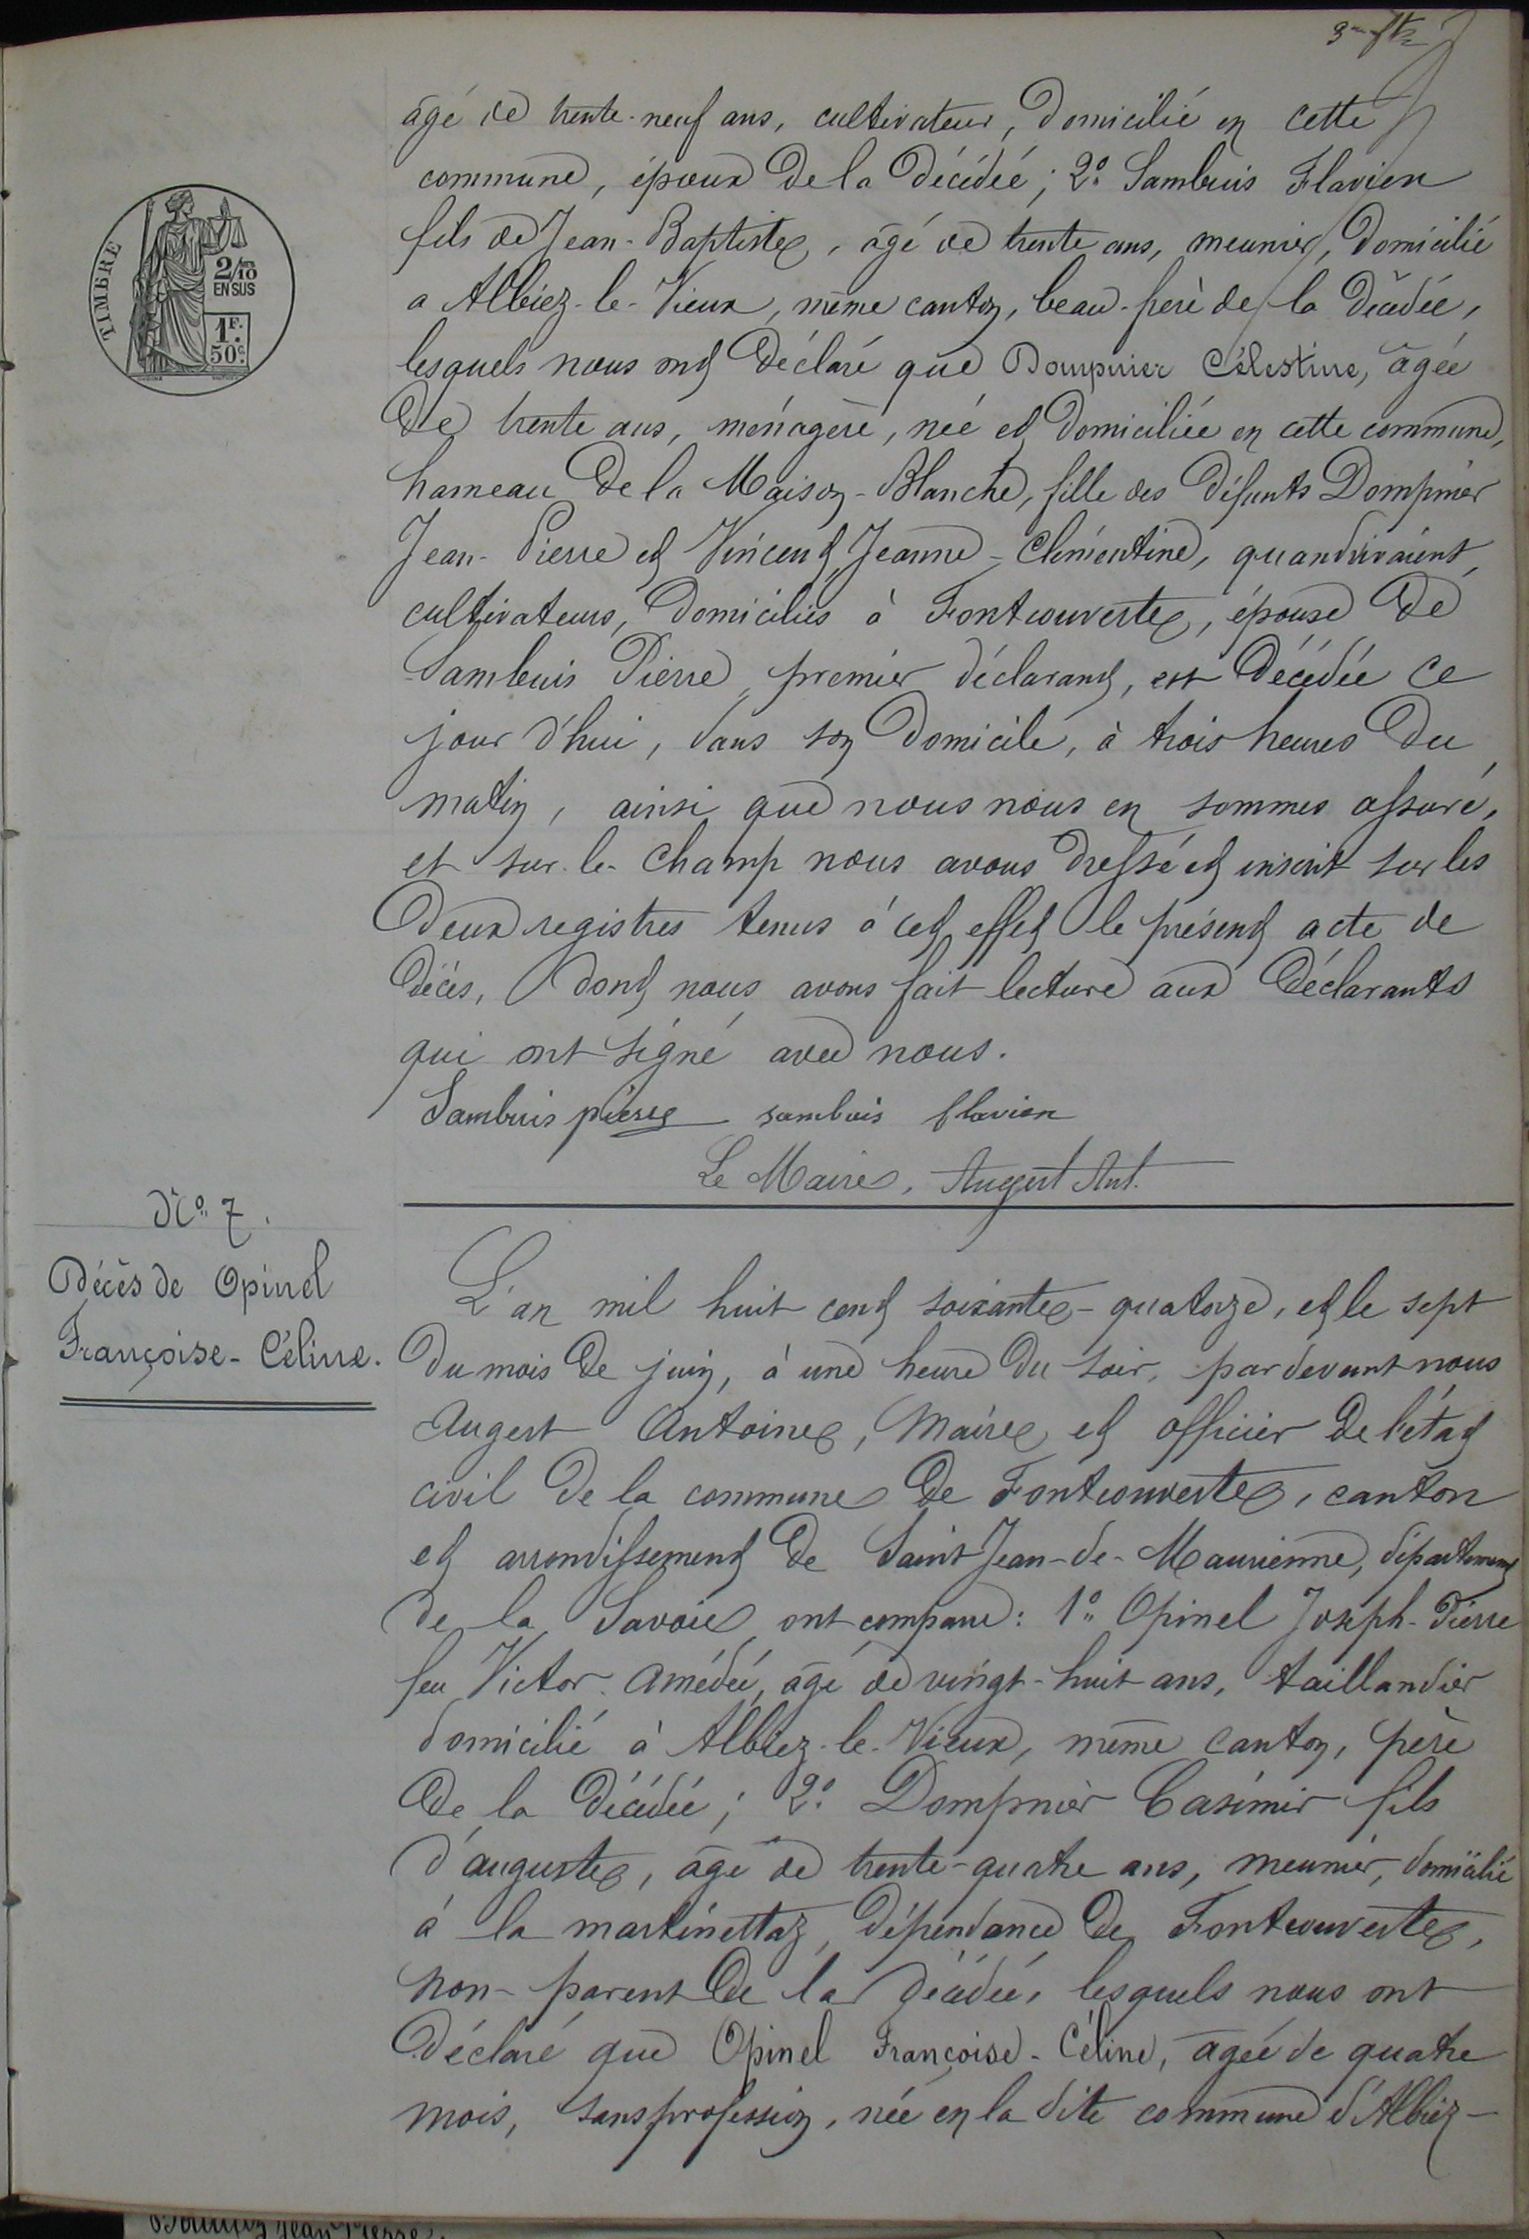 3me fto
âgé de trente-neuf ans, cultivateur, domicilié en cette
commune, époux de la décédée ; 2° Sambuis Flavien
fils de Jean-Baptiste, âgé de trente ans, meunier, domicilié
a Albiez-le-Vieux, même canton, beau-frère de la décédée,
lesquels nous ont déclaré que Dompnier Célestine, âgée
de trente ans, ménagère, née et domiciliée en cette commune,
hameau de la Maison-Blanche, fille des défunts Dompnier
Jean-Pierre et Vincent Jeanne-Clémentine, quand vivaient
cultivateurs, domiciliés à Fontcouverte, épouse de
Sambuis Pierre, premier déclarant, est décédée ce
jour d'hui, dans son domicile, à trois heures du
matin, ainsi que nous nous en sommes assuré,
et sur-le-champ nous avons dressé et inscrit sur les
deux registres tenus à cet effet le présent acte de
décès, dont nous avons fait lecture aux déclarants
qui ont signé avec nous.
Sambuis pierre sambuis flavien
Le Maire, Augert Ant.
N° 7.
Décès de Opinel
Françoise-Céline.
L'an mil huit cent soixante-quatorze, et le sept
du mois de juin, à une heure du soir, par devant nous
Augert Antoine, Maire et officier de l'état
civil de la commune de Fontcouverte, canton
et arrondissement de Saint Jean-de-Maurienne, département
de la Savoie, ont comparu : 1° Opinel Joseph-Pierre
feu Victor Amédée, âgé de vingt-huit ans, taillandier
domicilié à Albiez-le-Vieux, même canton, père
de la décédée ; 2° Dompnier Casimir fils
d'auguste, âgé de trente-quatre ans, meunier, domicilié
à la martinettaz, dépendance de Fontcouverte,
non-parent de la décédée, lesquels nous ont
déclaré que Opinel Françoise-Céline, âgée de quatre
mois, sans profession, née en la dite commune d'Albiez-
TIMBRE
2/10
EN SUS
1F.
50c.